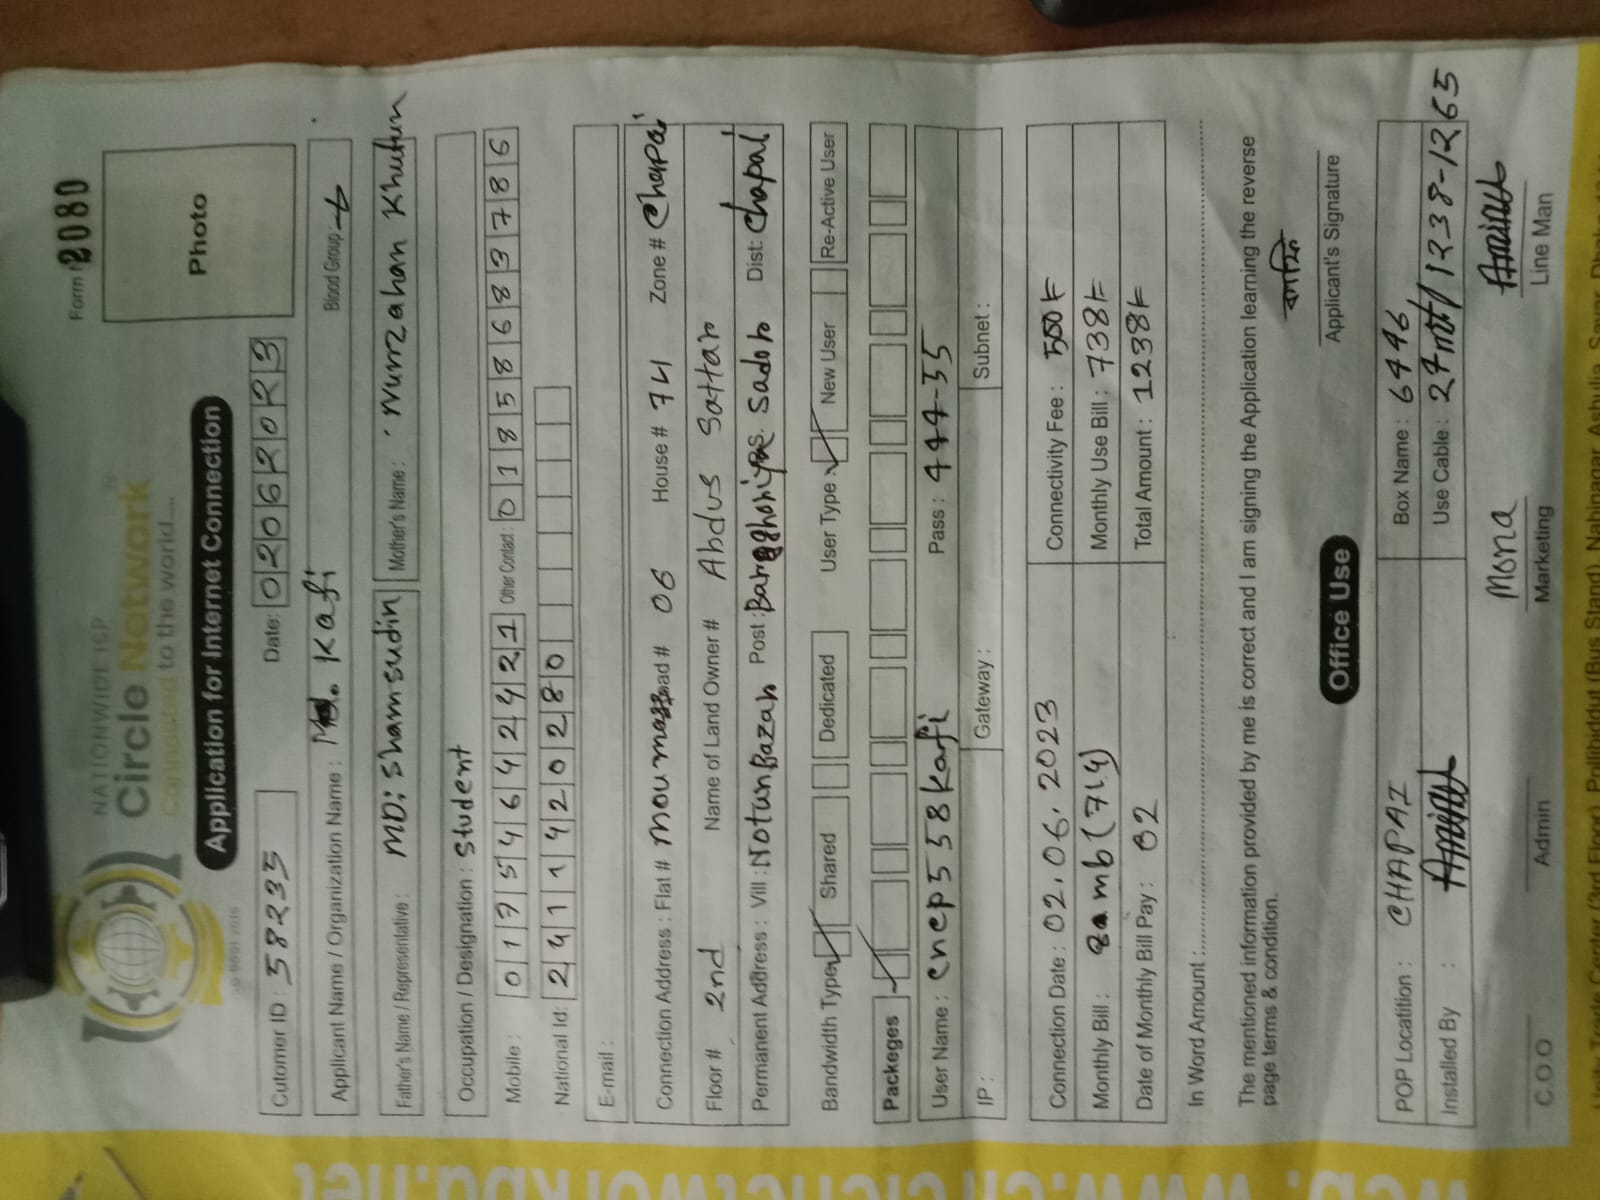 Form 2080
NATIONWIDE ISP
Circle Network
Connected to the world....
Photo
Application for Internet Connection
Cutomer ID : 58235 Date: 02062023
Applicant Name / Organization Name : Md. Kafi Blood Group :
Father's Name / Representative : MD: Shamsudin Mother's Name : Nurzahan Khutun
Occupation / Designation : Student
Mobile : 01754642421 Other Contact : 01858683786
National Id: 2411420280
E-mail :
Connection Address : Flat # Road # 06 House # 74 Zone # Chapai
Floor # 2nd Name of Land Owner # Abdus Sattar
Permanent Address : Vill : Notun Bazar Post : Sador Dist: Chapai
Bandwidth Type Shared Dedicated User Type New User Re-Active User
Packeges
User Name : cnep558kafi Pass : 444-55
IP : Gateway : Subnet :
Connection Date : 02.06.2023 Connectivity Fee : 500৳
Monthly Bill : mb (714) Monthly Use Bill : 738৳
Date of Monthly Bill Pay : 02 Total Amount : 1238৳
In Word Amount :
The mentioned information provided by me is correct and I am signing the Application learning the reverse
page terms & condition.
কাফি
Applicant's Signature
Office Use
POP Locatition : CHAPAI Box Name : 6446
Installed By : Use Cable : 27 mtr/1238-1265
Mona
C.O.O Admin Marketing Line Man